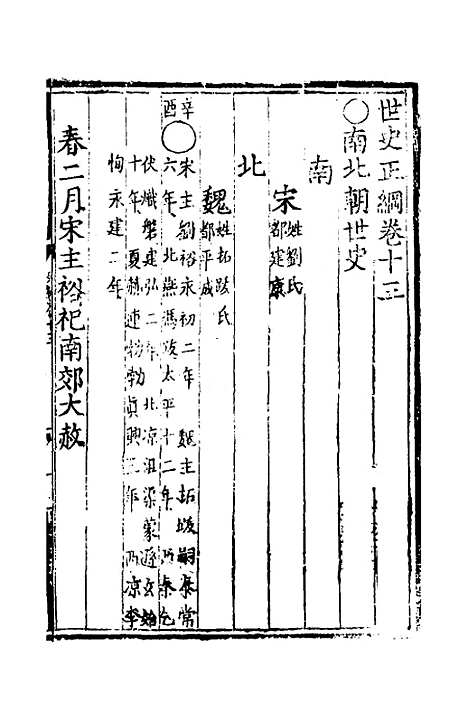 世史正綱卷十三
○南北朝世史
南
宋姓劉氏
都建康
北
魏姓拓跋氏
都平城
辛酉○宋主劉裕永初二年 魏主拓跋嗣泰常
六年 北燕馮跋太平十二年 西秦乞
伏熾磐建弘二年 北凉沮渠蒙遜玄始
十年 夏赫連勃勃真興三年 西凉李
恂永建二年
春二月宋主裕祀南郊大赦